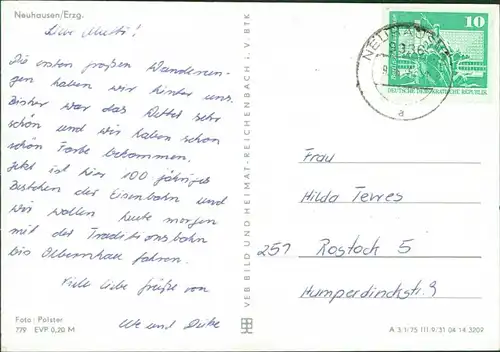 Neuhausen/Erzg.
Liebe Mutti!
Die ersten großen Wanderun-
gen haben wir hinter uns.
Bisher war das Wetter sehr
schön und wir haben schon
schön Farbe bekommen.
Jetzt ist hier 100 jähriges
Bestehen der Eisenbahn und
wir wollen heute morgen
mit der Traditionsbahn
bis Olbernhau fahren.
Viele liebe Grüße von
Ute und
Foto: Polster
779 EVP 0,20 M
VEB BILD UND HEIMAT · REICHENBACH i. V. BTK
NEUHAUSEN
9336
a
10
DEUTSCHE DEMOKRATISCHE REPUBLIK
Frau
Hilda Terres
251 Rostock 5
Humperdinckstr. 9
A 3/1/75 III/9/31 04 14 3209